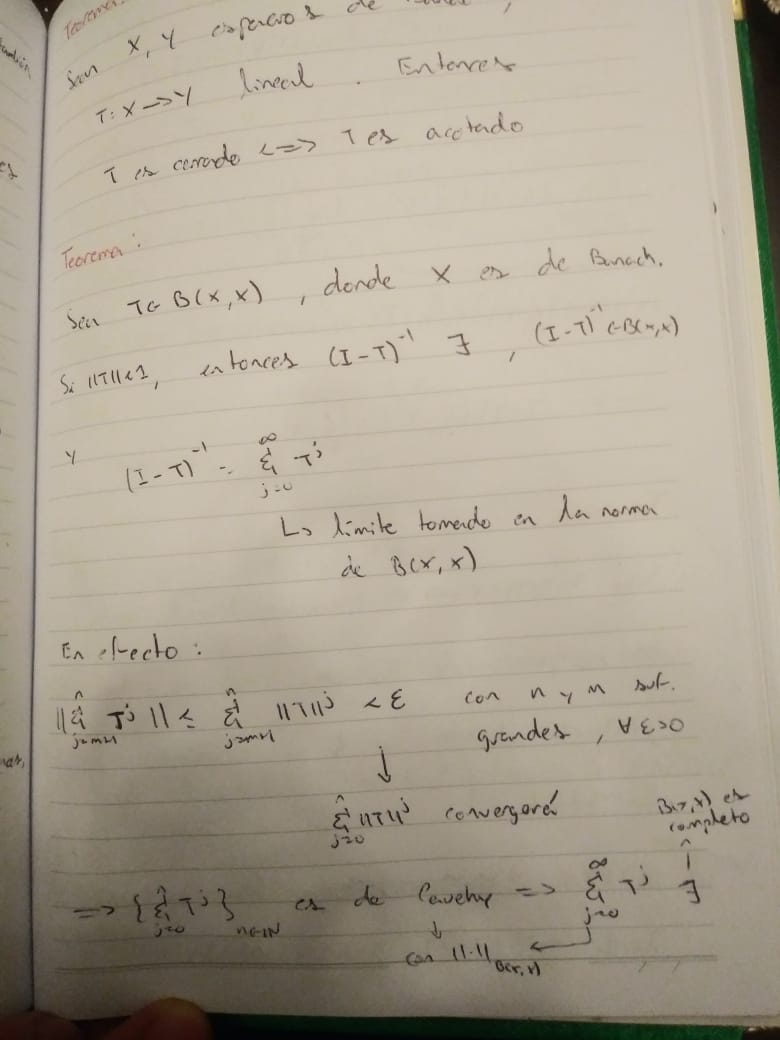 Teorema:
Sean X, Y espacios de
T: X → Y lineal. Entonces
T es cerrado <=> T es acotado
Teorema:
Sea T ∈ B(X,X), donde X es de Banach.
Si ||T|| < 1, entonces (I-T)⁻¹ ∃, (I-T)⁻¹ ∈ B(X,X)
y (I-T)⁻¹ = ∑_{j=0}^{∞} T^j
↳ límite tomado en la norma
de B(X,X)
En efecto:
||∑_{j=m+1}^{n} T^j|| ≤ ∑_{j=m+1}^{n} ||T||^j < ε con n y m suf.
grandes, ∀ε>0
↓
∑_{j=0}^{n} ||T||^j convergerá
B(X,X) es
completo
↑
=> {∑_{j=0}^{n} T^j}_{n∈ℕ} es de Cauchy => ∑_{j=0}^{∞} T^j ∃
↓
con ||·||_{B(X,X)} ←